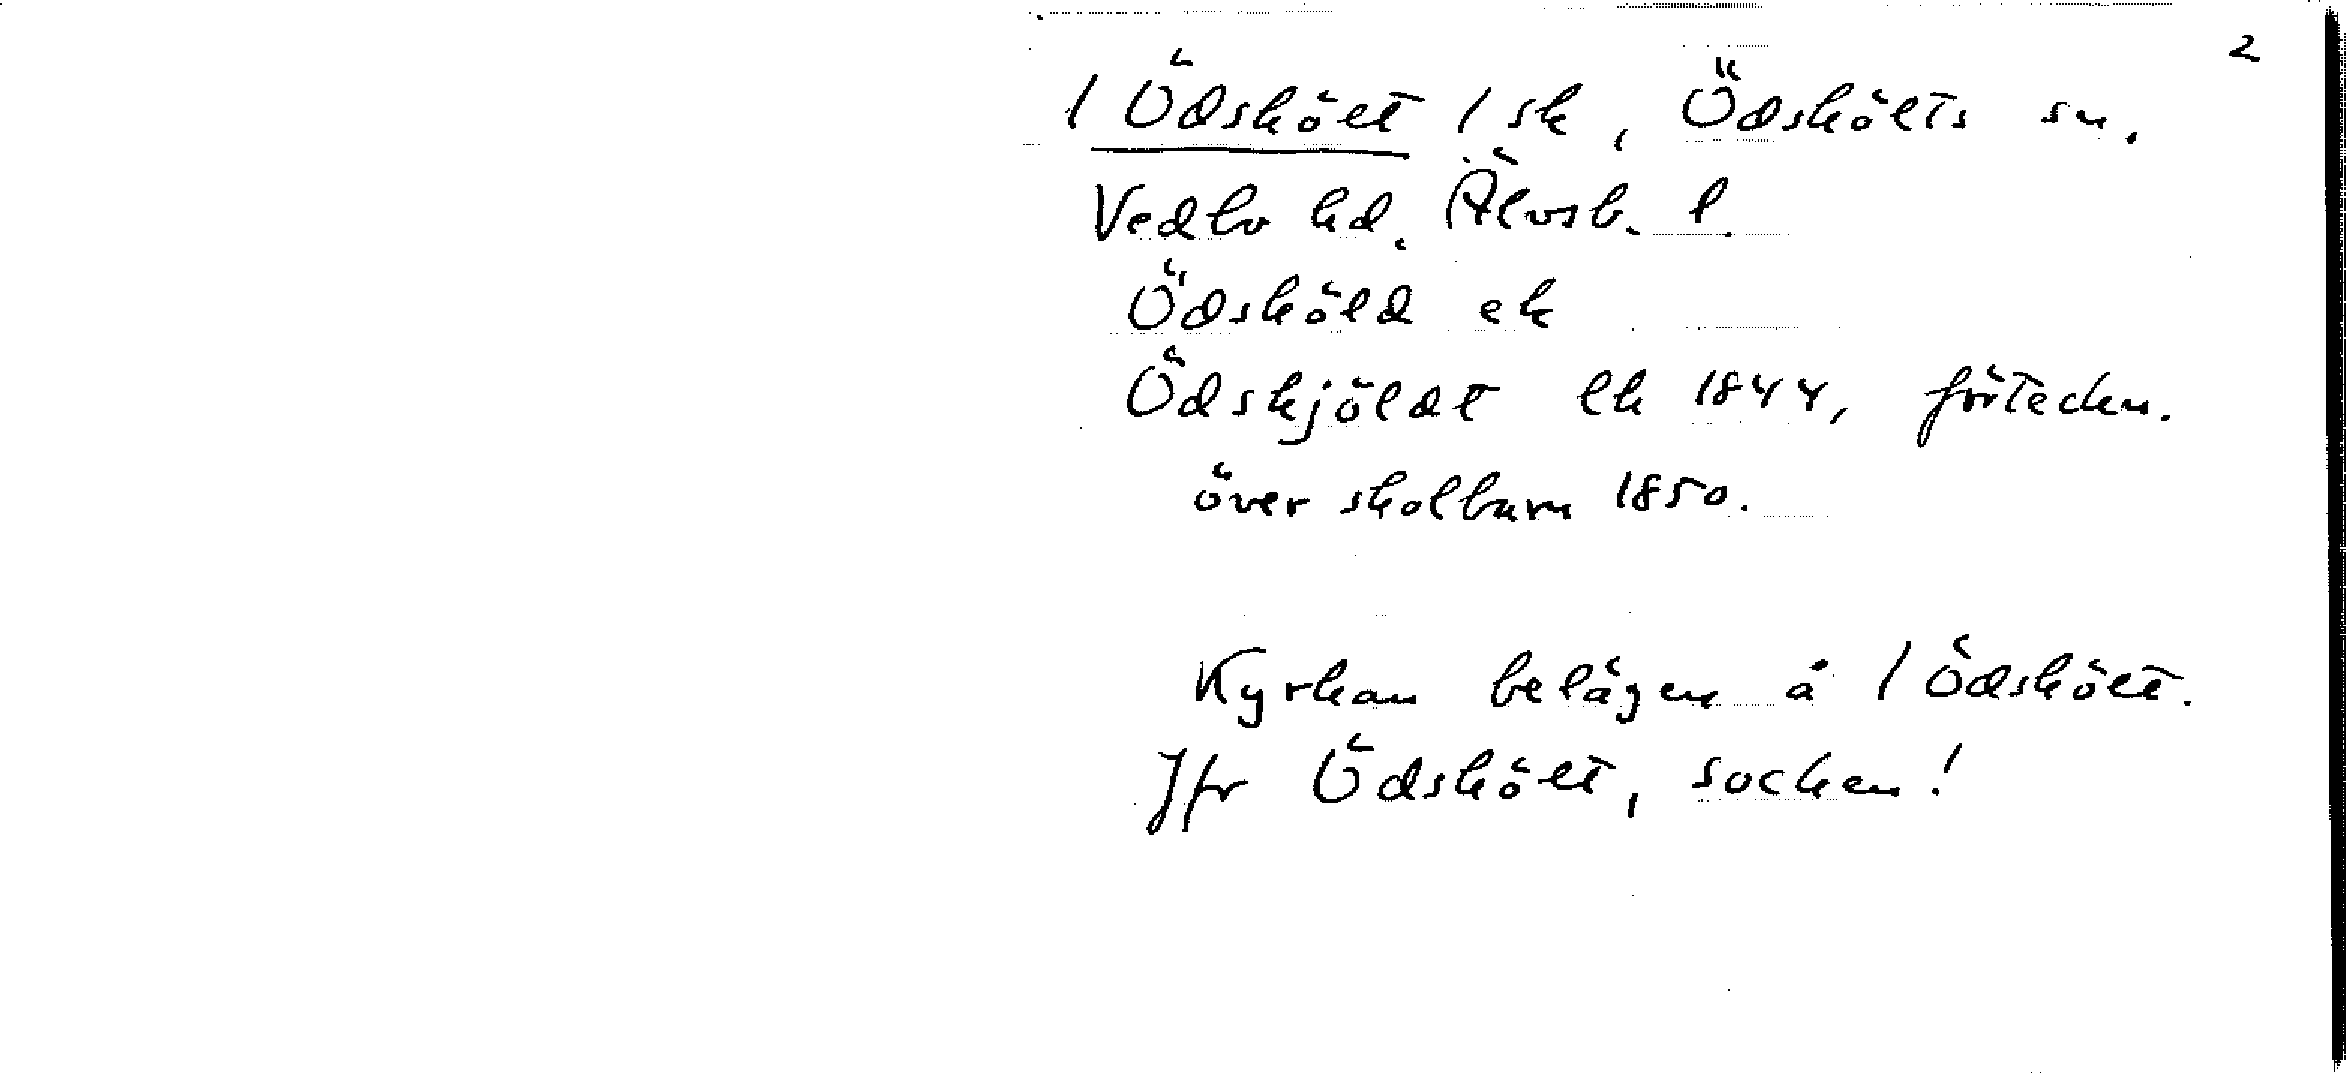 2
1 Ödskölt 1 sk, Ödskölts sn.
Vedbo hd. Älvsb. l.
Ödsköld ek
Ödskjöldt lk 1844, förteckn.
över skolbarn 1850.
Kyrkan belägen å 1 Ödskölt.
Jfr Ödskölt, socken!